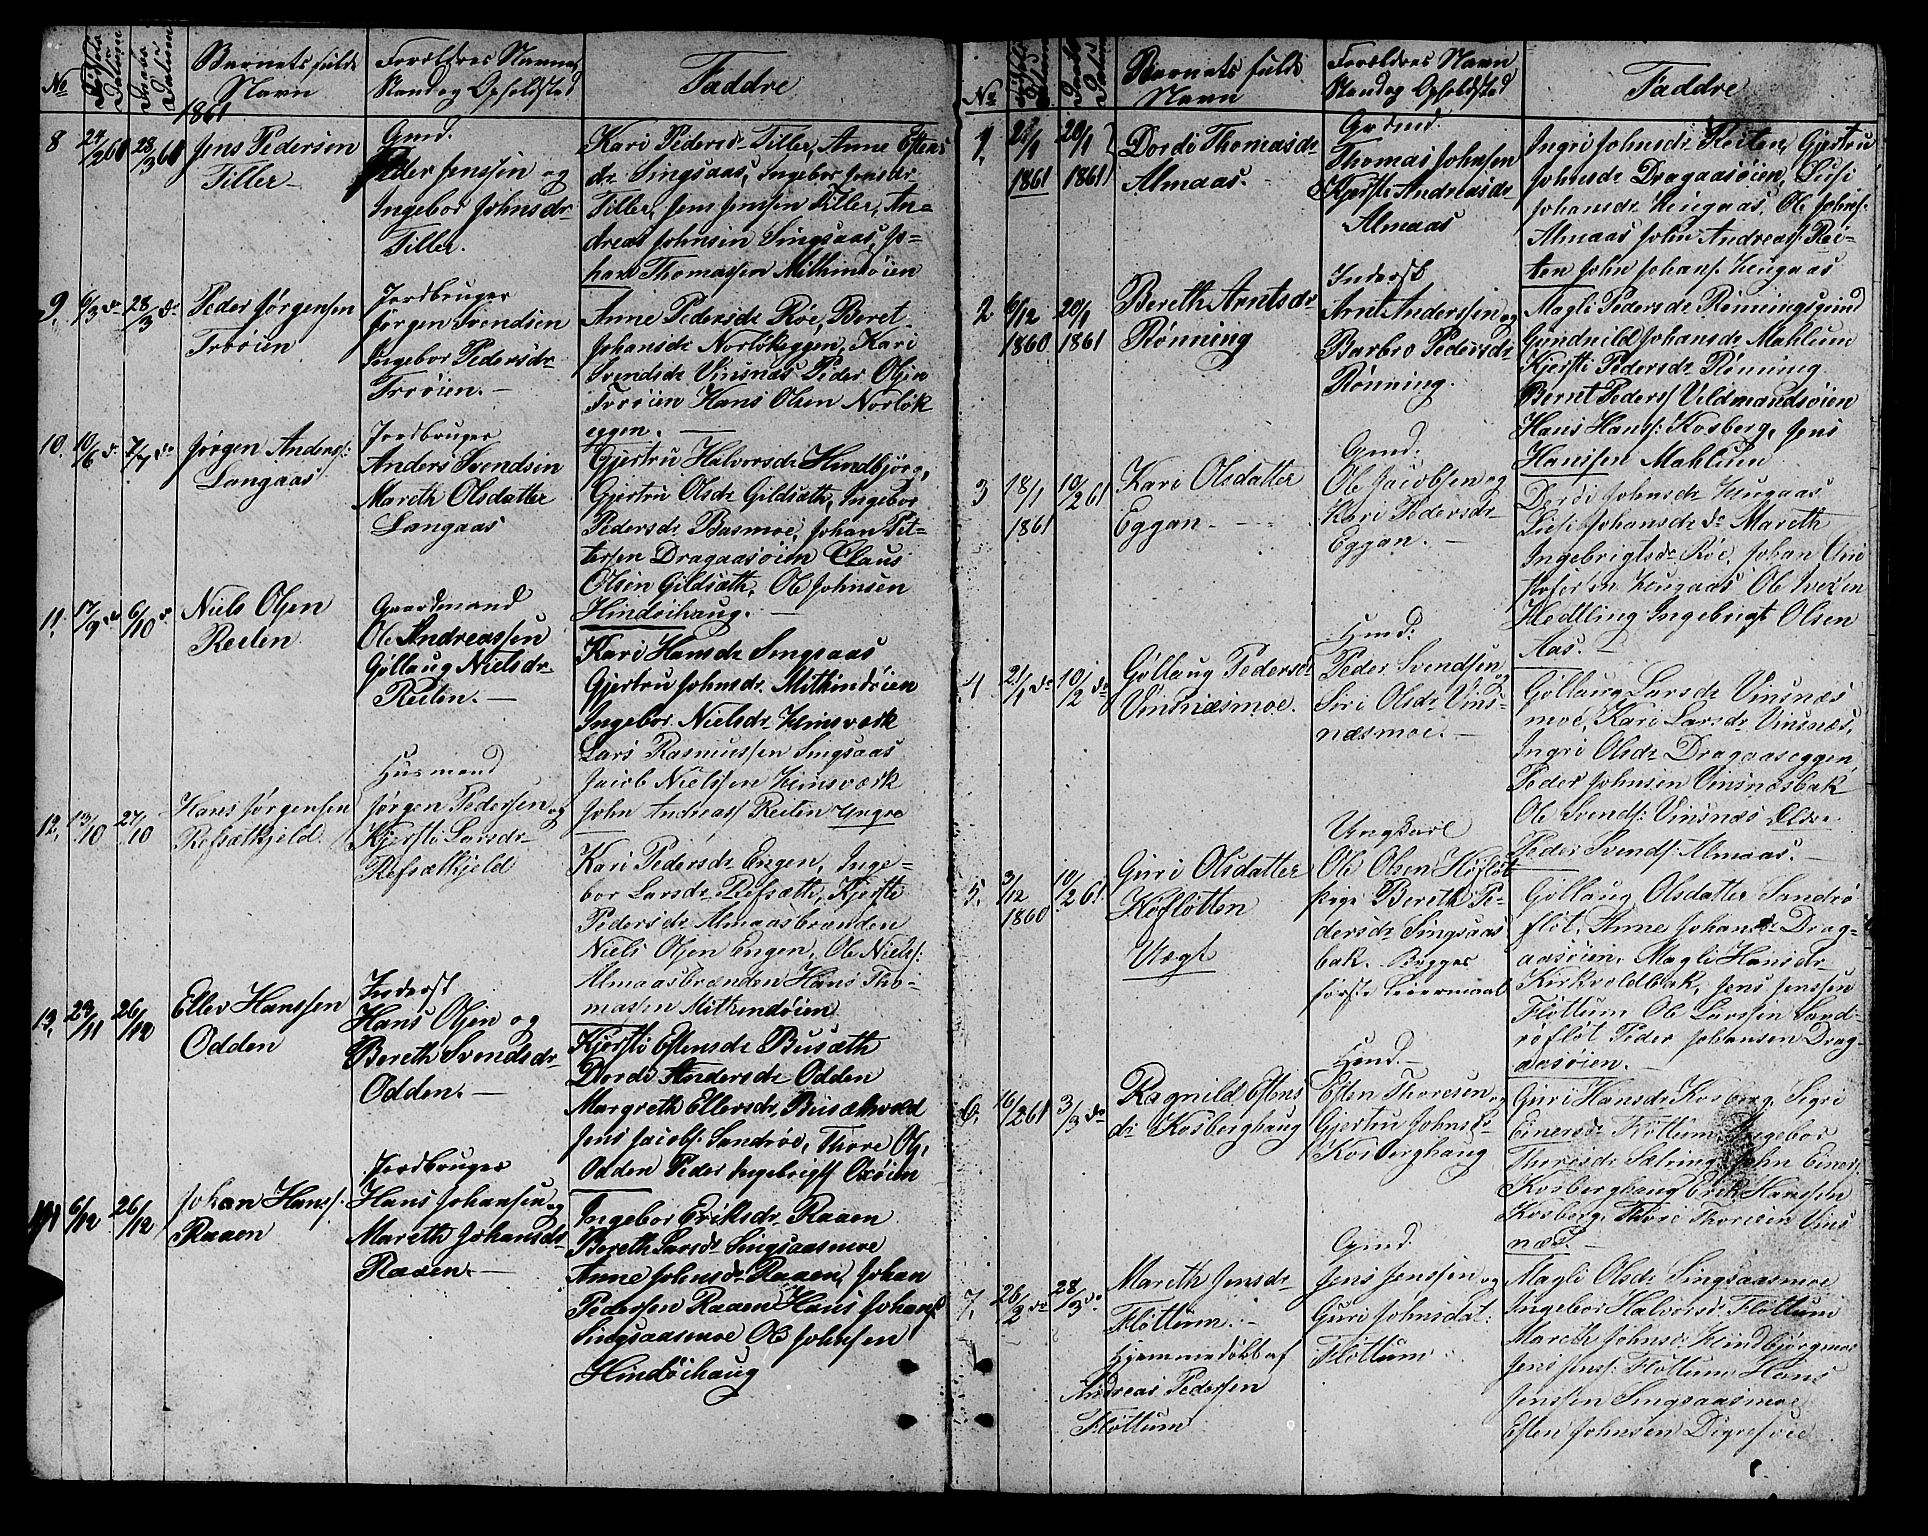 No
Fødsels Datum
Daabs Datum
Barnets fulde
Navn
Forældres Navne,
Stand og Opholdsted
Faddre
1861
8 24/2 61 28/3 61
Jens Pedersen
Tiller
Gmd.
Peder Jenssen og
Ingebor Johnsdr
Tiller.
Kari Pedersdr Tiller, Anne Estens
dr Singsaas, Ingebor Jensdr
Tiller, Jens Jensen Tiller, An-
dreas Johnsen Singsaas, Jo-
han Thomassen Mitlindøien
9. 6/3 do 28/3 do
Peder Jørgensen
Trøøien
Jordbruger
Jørgen Svendsen
Ingebor Pedersdr
Trøøien.
Anne Pedersdr Røe, Beret
Johansdr Norløkeggen, Kari
Svendsdr Vinsnæs Peder Olsen
Trøøien Hans Olsen Norløk
eggen.
10. 10/6 do 7/7 do
Jørgen Anders:
Langaas
Jordbruger
Anders Svendsen
Mareth Olsdatter
Langaas
Gjertru Halvorsdr Hindbjørg,
Gjertru Olsdr Gildsæth, Ingebor
Pedersdr Basmoe, Johan Pet-
tersen Dragaasøien Claus
Olsen Gildsæth, Ole Johnsen
Hindøihaug.
11. 17/9 do 6/10 do
Niels Olsen
Reiten
Gaardmand
Ole Andreassen
Gøllaug Nielsdr
Reiten.
Kari Hansdr Singsaas
Gjertru Johnsdr Mitlindøien
Ingebor Nielsdr
Lars Rasmussen Singsaas
Jacob Nielssen
John Andreass Reiten Yngre
12. 13/10 27/10
Hans Jørgensen
Refsætkjeld.
Husmand
Jørgen Pedersen og
Kjersti Larsdr
Refsætkjeld
Kari Pedersdr Engen, Inge-
bor Larsdr Refsæth, Kjersti
Pedersdr Almaasbrænden
Niels Olsen Engen, Ole Niels:
Almaasbrænden Hans Tho-
masen Mitlindøien
13. 23/11 26/12
Eller Hanssen
Odden
Inderst
Hans Olsen og
Bereth Svendsdr
Odden.
Kjersti Estensdr Busæth
Dordi Andersdr Odden
Margreth Ellersdr
Jens Jacobs: Sandrøe, Thore Ols,
Odden Peder Ingebrigts
14 6/12 26/12
Johan Hans:
Raaen
Jordbruger
Hans Johansen og
Mareth Johansdr
Raaen.
Ingebor Eriksdr Raaen
Bereth Larsdr Singsaasmoe
Anne Johnsdr Raaen, Johan
Pedersen Raaen Hans Johans
Singsaasmoe Ole Johnsen
Hindøihaug
No
Barnets fulde
Navn
Forældres Navn
Stand og Opholdsted
Faddre
1. 2/1 1861 20/1 1861
Dordi Thomasdr
Almaas.
Grdmd.
Thomas Johnsen
Kjersti Andreasdr
Almaas
Ingri Johnsdr Reiten, Gjertru
Johnsdr Dragaasøien, Lusi
Johansdr Ole Johns:
Almaas John Andreas: Rei-
ten John Johans:
2 6/12 1860 20/1 1861
Bereth Arntsdr
Rønning
Inderst
Arnt Anderssen og
Barbro Pedersdr
Rønning.
Magli Pedersdr Rønningsgrind
Gundnild Johansdr Mahlum
Kjersti Pedersdr Rønning
Bernt Peders Vildmandsøien
Hans Hans: Kosberg, Jens
Hansen Mahlum
3 18/1 1861 10/2 61
Kari Olsdatter
Eggan.
Gmd.
Ole Jacobsen og
Kari Pedersdr
Eggan.
Dordi Johnsdr
Johansdr do Mareth
Ingebrigtsdr Røe, Johan
Ole Iversen
Hedtling Ingebrigt Olsen
Aas.
4 2/1 do 10/2 do
Gøllaug Pedersdr
Vinsnæsmoe.
Hmd:
Peder Svendsen og
Siri Olsdr Vins-
næsmoe.
Gøllaug Larsdr Vinsnæs
moe, Kari Larsdr Vinsnæs,
Ingri Olsdr Dragaaseggen
Peder Johnsen Vinsnæsbak
Ole Svends: Vinsnæs Eldre
Peder Svends: Almaas.
5. 3/12 1860 10/2 61
Guri Olsdatter
Høfløtten
Uægt
Ungkarl
Ole Olsen Høfløt
pige Bereth Pe-
dersdr Singsaas
bak. Begges
første Leiermaal
Gøllaug Olsdatter Sandrø
fløt, Anne Johansdr Drag-
aasøien, Magli Hansdr
Kirkvoldbak, Jens Jenssen
Fløttum Ole Larssen Sand-
røfløt Peder Johansen Drag-
aasøien.
6. 16/2 61 3/3 do
Ragnild Estens
dr Kosberghaug
Hmd.
Esten Thoresen og
Gjertru Johnsdr
Kosberghaug
Guri Hansdr Kosberg, Sigri
Einersdr Fløttum, Ingebor
Thoresdr Sætring John Einers:
Kosberghaug Erik Hanssen
Kosberg, Thore Thoresen Vins
næs.
7. 26/2 do 28/3 do
Mareth Jensdr
Fløttum.
Hjemmedøbt af
Andreas Pedersen
Fløttum
Gmd.
Jens Jenssen og
Guri Johnsdat:
Fløttum
Magli Olsdr Singsaasmoe
Ingebor Halvorsdr Fløttum
Mareth Johnsdr Hindbjørgmoe
Jens Jens: Fløttum Hans
Jenssen Singsaasmoe
Esten Johnsen